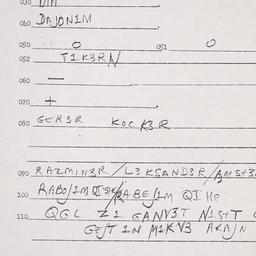 030 DIN
040 DAJON1M
050 O 051 O
052 T1K3RN
060 —
070 +
080 GER3R KOCK3R
090 RAZMIN3R/L3KSAND3R/AMST3
100 RABOJ1M QI RABEJ1M QI HE
110 QGL Z1 GANV3T N1ST
GEJT 1N M1KV3 ARAJN